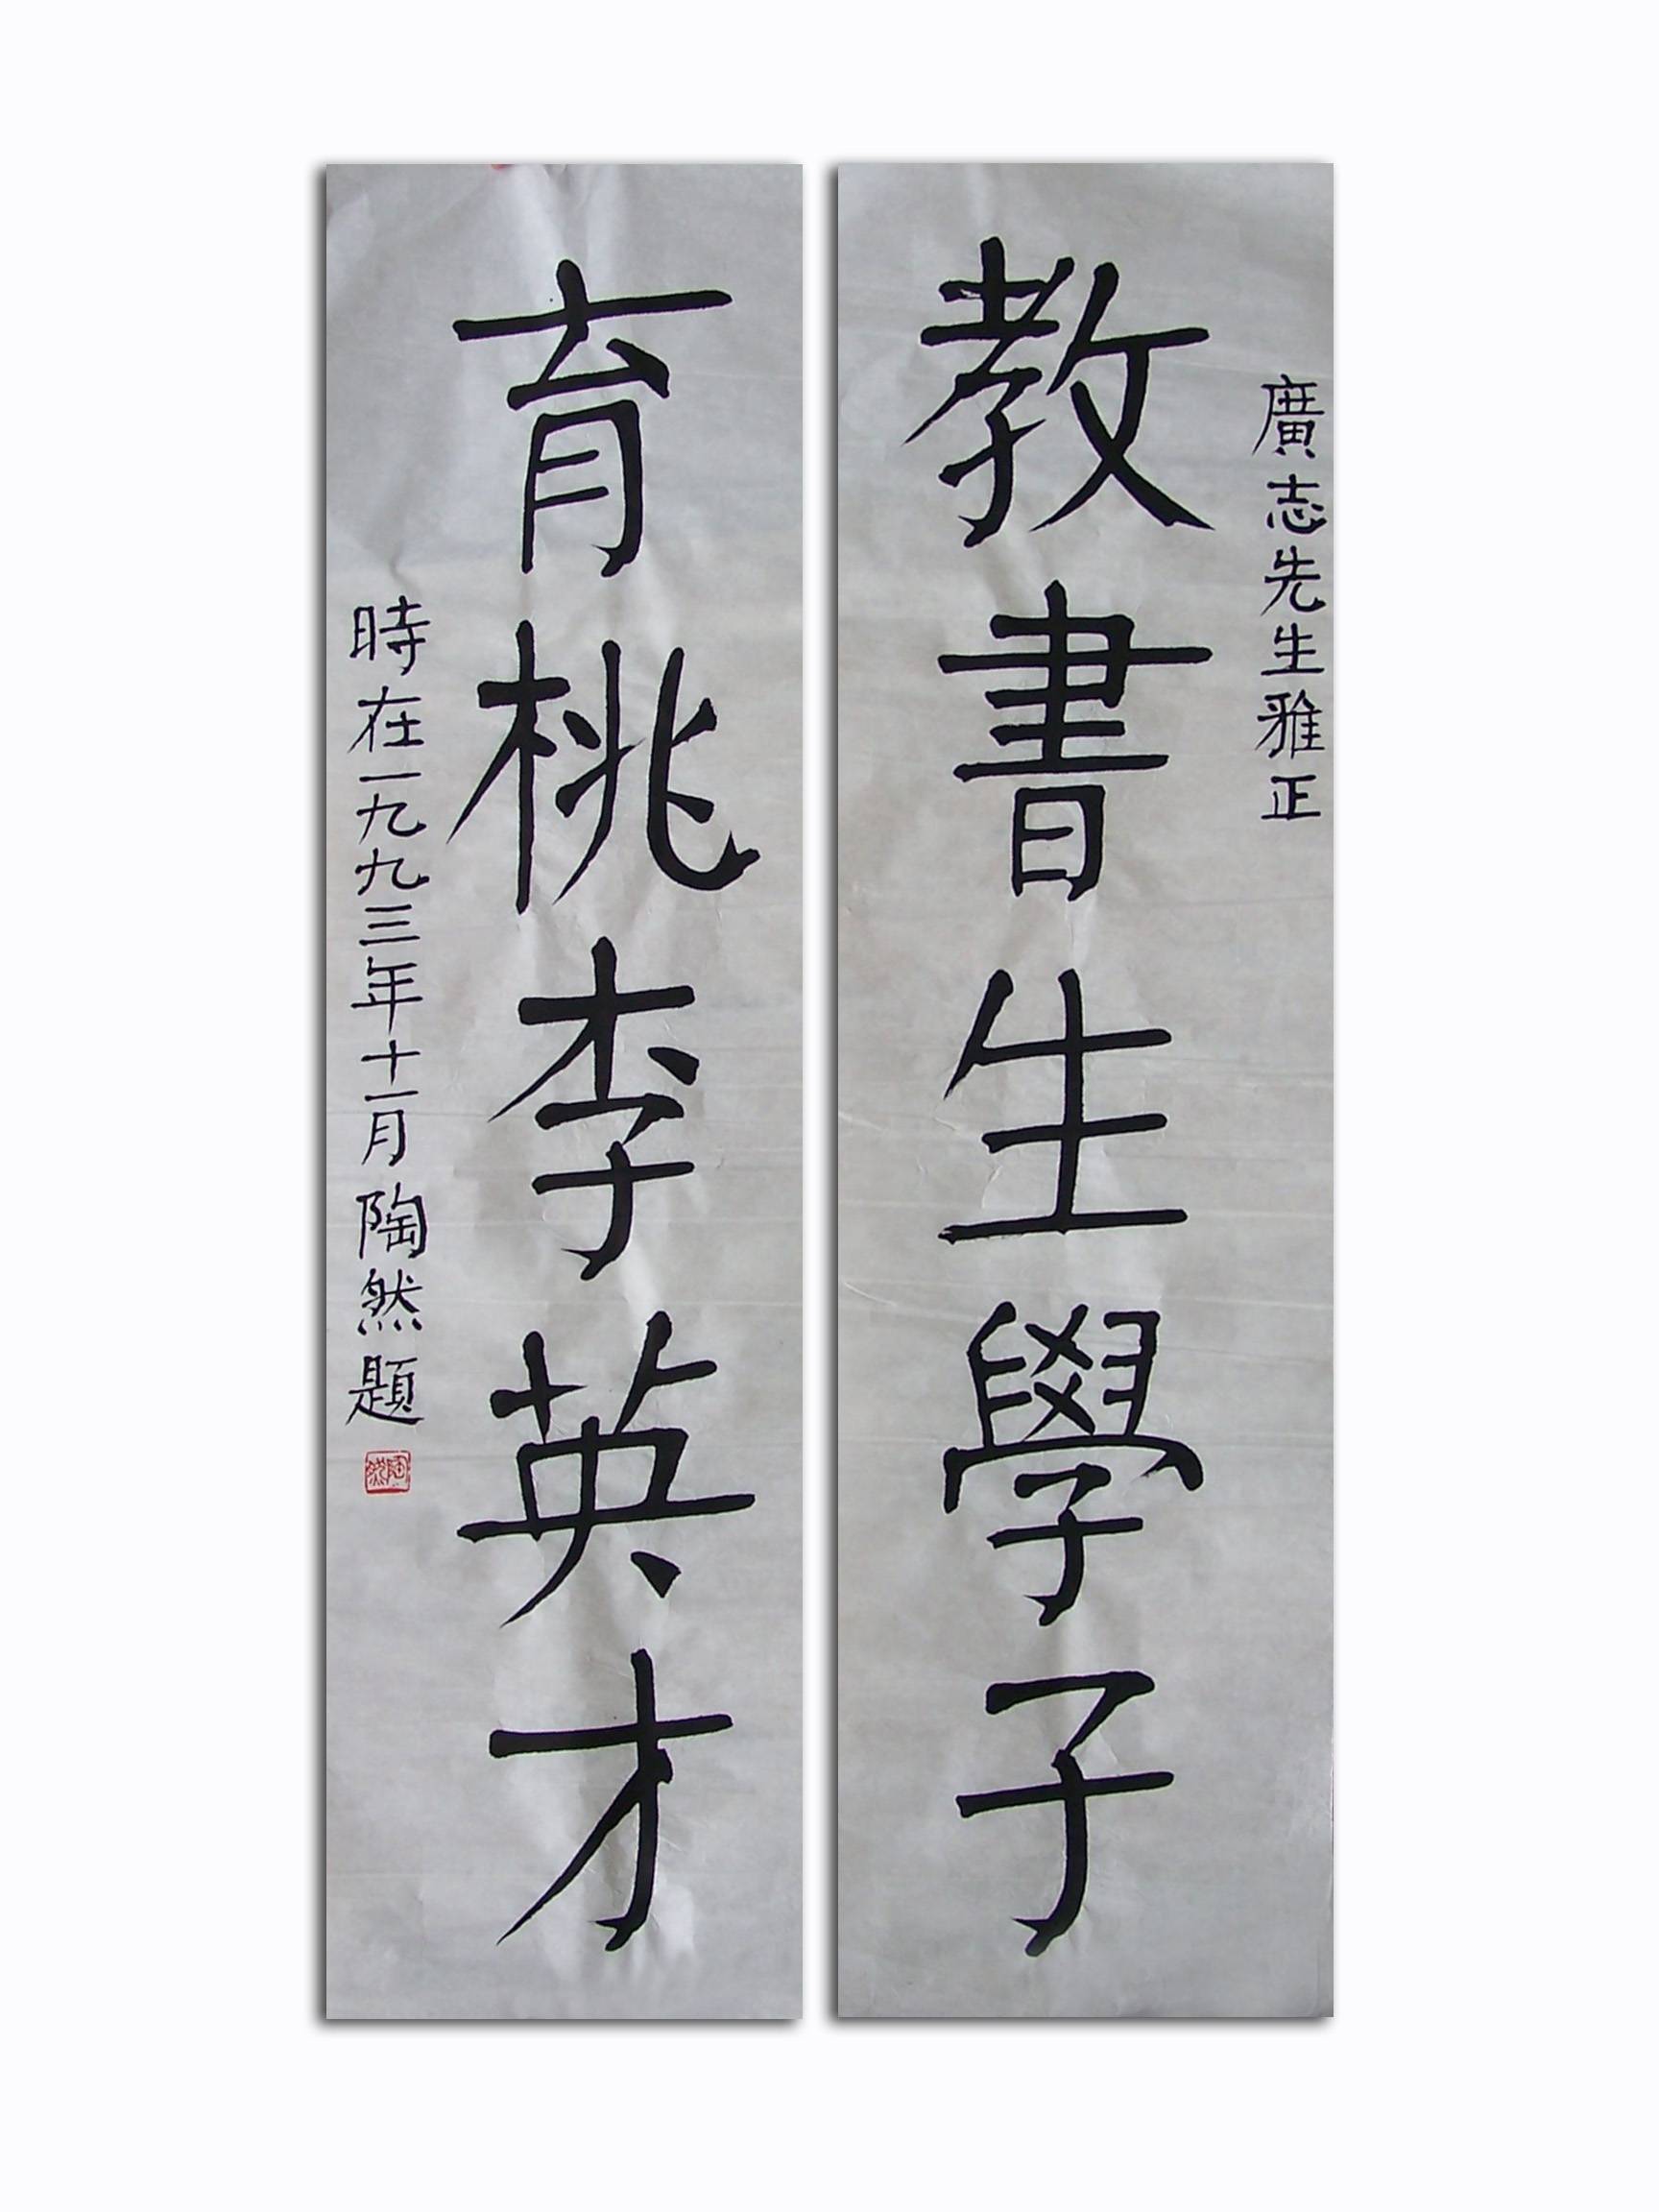 廣志先生雅正
教書生學子
育桃李英才
時在一九九三年十一月陶然題
陶然